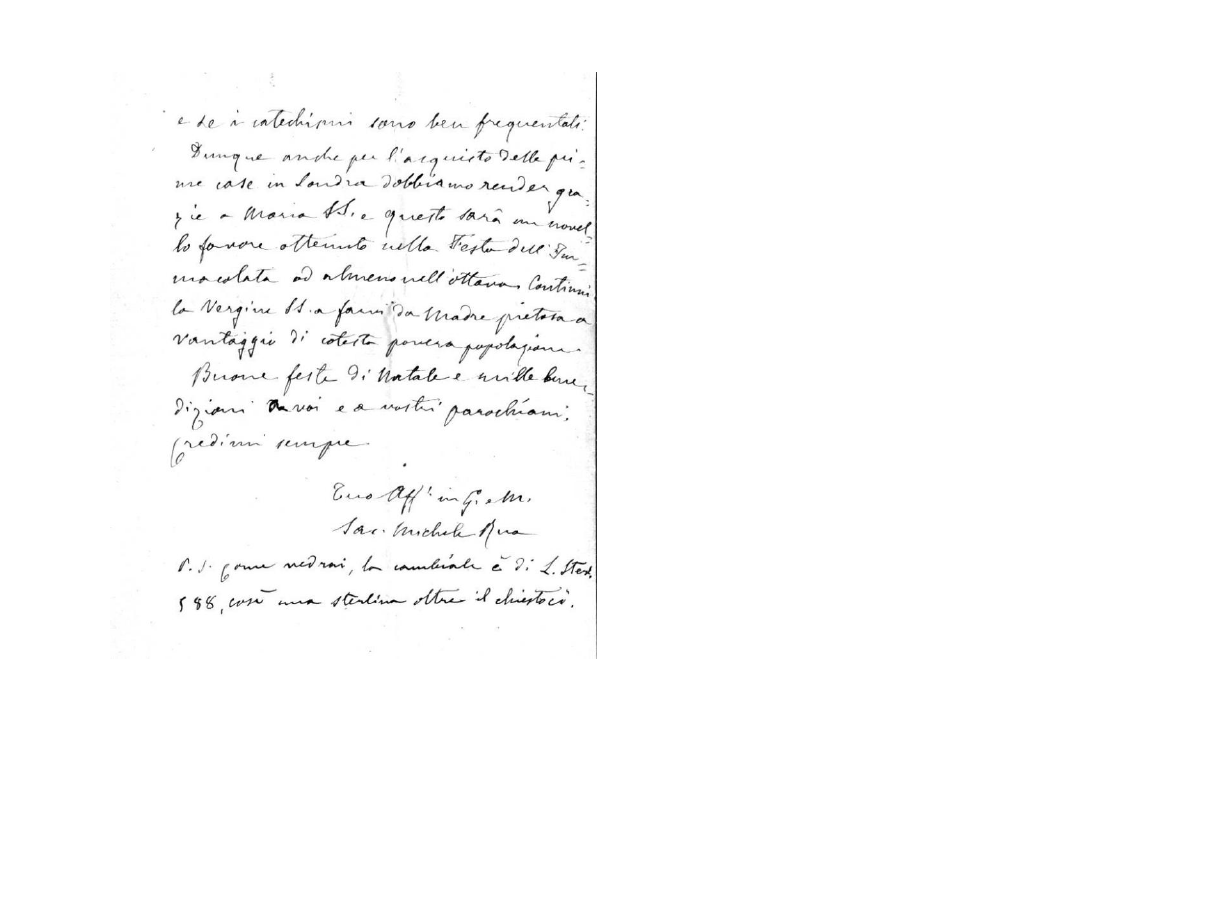 e se i catechismi sono ben frequentati.
Dunque anche per l'acquisto delle pri=
me case in Londra dobbiamo render gra=
zie a Maria SS. e questo sarà un novel=
lo favore ottenuto nella Festa dell'Im=
macolata od almeno nell'ottava. Continui
la Vergine SS. a farvi da Madre pietosa a
vantaggio di cotesta povera popolazione.
Buone feste di Natale e mille bene=
dizioni a voi e a vostri parochiani.
Credimi sempre
Tuo Aff.º in G. e M.
Sac. Michele Rua
P.S. Come vedrai, la cambiale è di L. Ster.
588, cosí una sterlina oltre il